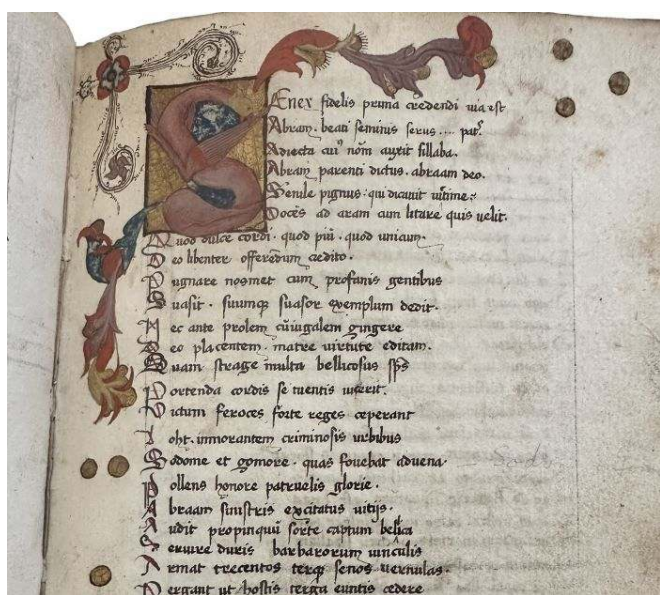 Senex fidelis prima credendi uia est
Abram. beati seminis serus ... pat᷑.
Adiecta cui᷒ nom̄ auxit sillaba.
Abram parenti dictus. abraam deo.
Senile pignus. qui dicauit uictime.
Doces ad aram cum litare quis uelit.
Quod dulce cordi. quod piū. quod unicum.
eo libenter offerēdum credito.
ugnare nosmet cum profanis gentibus
uasit. suumq; suasor exemplum dedit.
ec ante prolem cūiugalem gingere
eo placentem. matre uirtute editam.
Quam strage multa bellicosus sp̄s
ortenda cordis se uentis
ictum feroces forte reges ceperant
oht. inmorantem criminosis urbibus
Sodome et gomore. quas fouebat aduena.
ollens honore patruelis glorie.
braam sinistris excitatus uitijs.
udit propinquū sorte captum belica
eruire duris barbarorum uinculis
rmat trecentos terq; senos uernulas.
ergant ut hostis terga euntis cedere